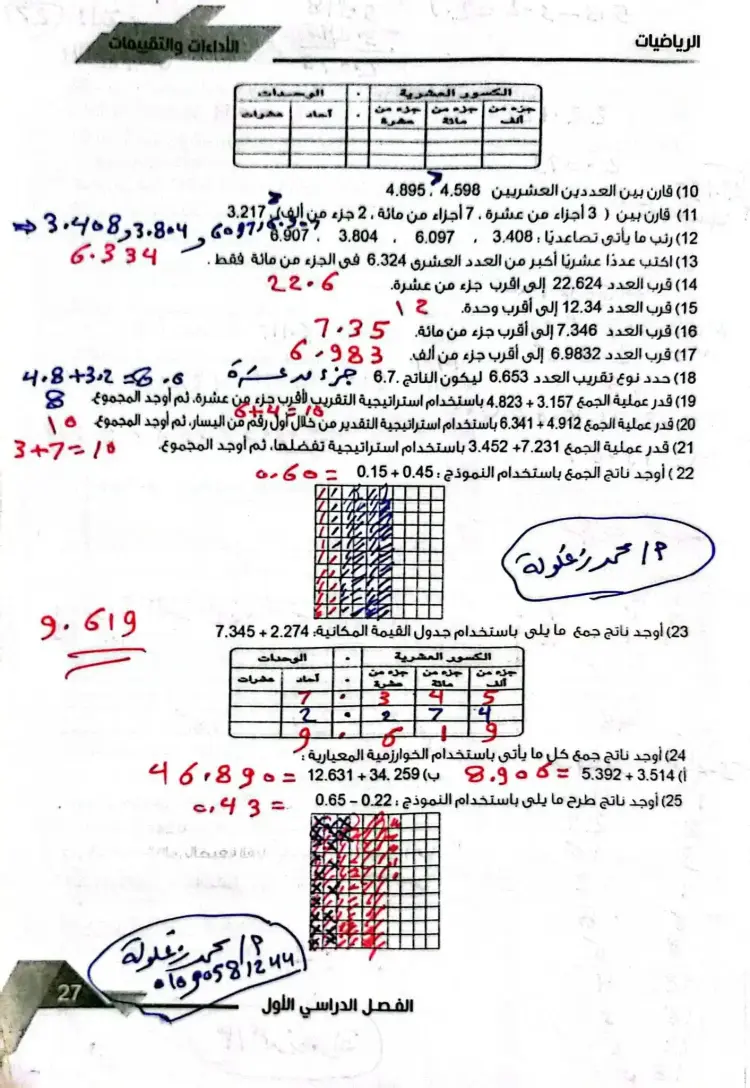 الرياضيات
الأداءات والتقييمات
الكسور العشرية . الوحدات
جزء من ألف جزء من مائة جزء من عشرة . آحاد عشرات
10) قارن بين العددين العشريين 4.598 ، 4.895
11) قارن بين ( 3 أجزاء من عشرة ، 7 أجزاء من مائة ، 2 جزء من ألف) ، 3.217
12) رتب ما يأتى تصاعديًا : 3.408 ، 6.097 ، 3.804 ، 6.907
3.408 , 3.804 , 6.097
13) اكتب عددًا عشريًا أكبر من العدد العشرى 6.324 فى الجزء من مائة فقط .
6.334
14) قرب العدد 22.624 إلى اقرب جزء من عشرة. 22.6
15) قرب العدد 12.34 إلى أقرب وحدة. 12
16) قرب العدد 7.346 إلى أقرب جزء من مائة. 7.35
17) قرب العدد 6.9832 إلى أقرب جزء من ألف. 6.983
18) حدد نوع تقريب العدد 6.653 ليكون الناتج 6.7. جزء من عشرة
19) قدر عملية الجمع 3.157 + 4.823 باستخدام استراتيجية التقريب لأقرب جزء من عشرة، ثم أوجد المجموع. 8
4.8+3.2
20) قدر عملية الجمع 4.912 + 6.341 باستخدام استراتيجية التقدير من خلال أول رقم من اليسار، ثم أوجد المجموع. 10
6+4=10
21) قدر عملية الجمع 7.231+ 3.452 باستخدام استراتيجية تفضلها، ثم أوجد المجموع.
3+7=10
22 ) أوجد ناتج الجمع باستخدام النموذج : 0.45 + 0.15 = 0.60
م/ محمد زغلولة
23) أوجد ناتج جمع ما يلى باستخدام جدول القيمة المكانية: 2.274 + 7.345
9.619
الكسور العشرية . الوحدات
جزء من ألف جزء من مائة جزء من عشرة . آحاد عشرات
7 . 3 4 5
2 . 2 7 4
9 . 6 1 9
24) أوجد ناتج جمع كل ما يأتى باستخدام الخوارزمية المعيارية :
أ) 5.392 + 3.514 = 8.906 ب) 12.631 + 34. 259 = 46.890
25) أوجد ناتج طرح ما يلى باستخدام النموذج : 0.22 – 0.65 = 0.43
م/ محمد زغلولة
01090581244
27
الفصل الدراسي الأول